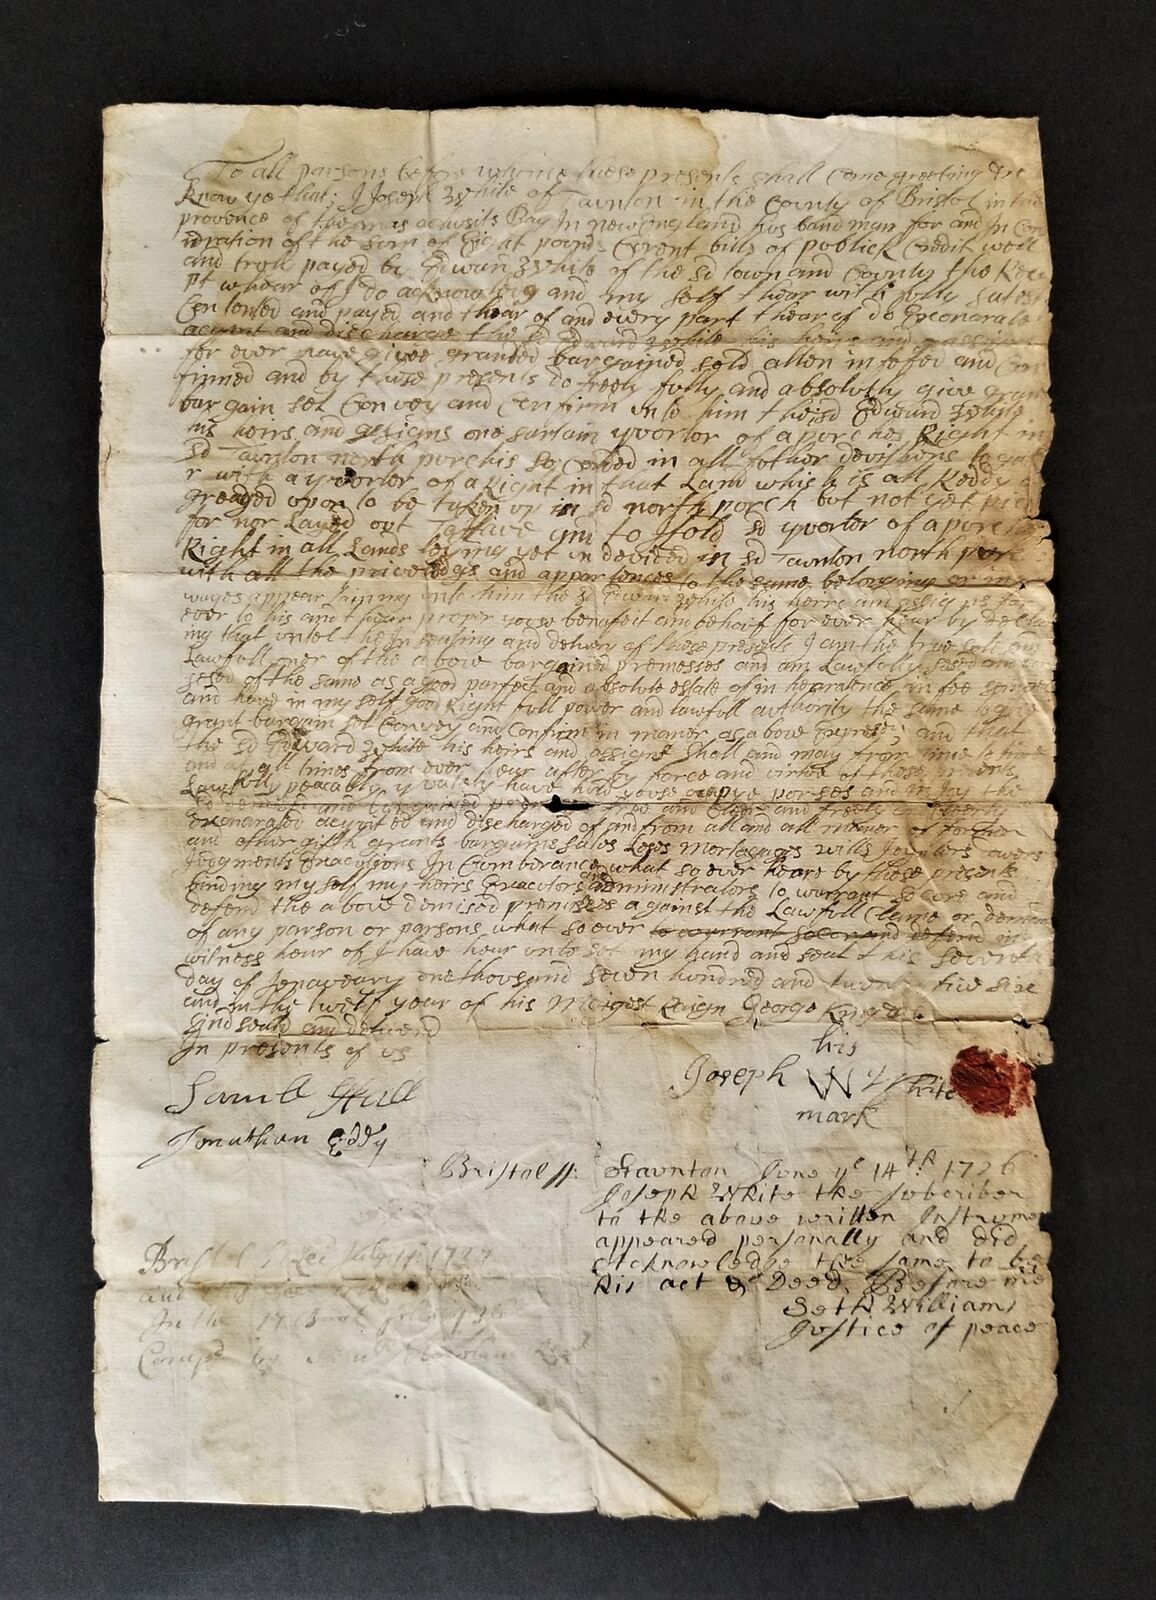 To all parsons before whome these presents shall Come greeting &c
Know ye that; I Joseph White of Taunton in the County of Bristol in the
provence of the masachusits Bay In new ingland husband man for and In Con
sidration of the sum of Eight pounds Corent bills of publick Credit well
and truly payed by Edward White of the sd town and County the Recei
pt whear of I do acknowledg and my self thear with fully satesf
Contented and payed and thear of and every part thear of do Exonarate
acquit and discharge the sd Edward White his heirs and
for ever have given granted bargained sold allen infefed and Con
firmed and by these presents do freely fully and absoluttly give grant
bargain sel Convey and Confirm unto him the sd Edward White
his heirs and assigns one sartain quorter of a porches Right in
sd Taunton north porchis so Called in all fother devishons togathe
r with a quorter of a Right in that Land which is all Reddy a
greaged upon to be taken up in sd north porch but not yet
for nor Layed out To have and to Hold sd quorter of a porches
Right in all Lands leying yet un devided in sd Taunton north por
with all the priveledgs and appartences to the same belonging or in
wayes appear taining unto him the sd Edward White his heirs and assigns for
ever to his and thear proper youse benafeit and behalf for ever hear by decla
ing that untel the Insealing and delivery of these presents I am the true sole and
Lawfull oner of the above bargained premesses and am Lawfolly sesed and po
sesed of the same as a good parfect and absolute estate of in hearatence in fee semple
and have in my self good Right full power and lawfull authority the same to give
grant bargain sel Convey and Confirm in maner as above Expresed and that
the sd Edward White his heirs and assigns shall and may from time to time
and at all times from ever hear after by force and virtue of these presents
Lawfully peacably quiately have hold youse ocupye porses and Injoy the
sd demised and bargained premises free and Clear and freely and Clearly
Exonarated acquited and discharged of and from all and all maner of former
and other gifts grants bargains sales Leses mortgages wills Jointers
Judgments Execusions In Cumberances what so ever heare by these presents
binding my self my heirs Executors and administrators to warrant secore and
defend the above demised premises against the Lawfull Clame or deman
of any parson or parsons what so ever to warrant secor and defend in
witness hear of I have hear unto set my hand and seal this seventh
day of Jenaweary one thousand seven hundred and twenty five six
and in the twelf year of his Maigest Raign George King &c
Sind seald and deliverd
In presents of us
his
Joseph W White
mark
Samll Hall
Jonathan Eddy
Bristol ss: Staunton June ye 14th: 1726
Joseph White the subcriber
to the above written Instrume
appeared personally and did
Acknowledge the same to be
his act & Deed, Before me
Seth Williams
Justice of peace
Bristol July 1727
and
In the 17 Book
Compd by